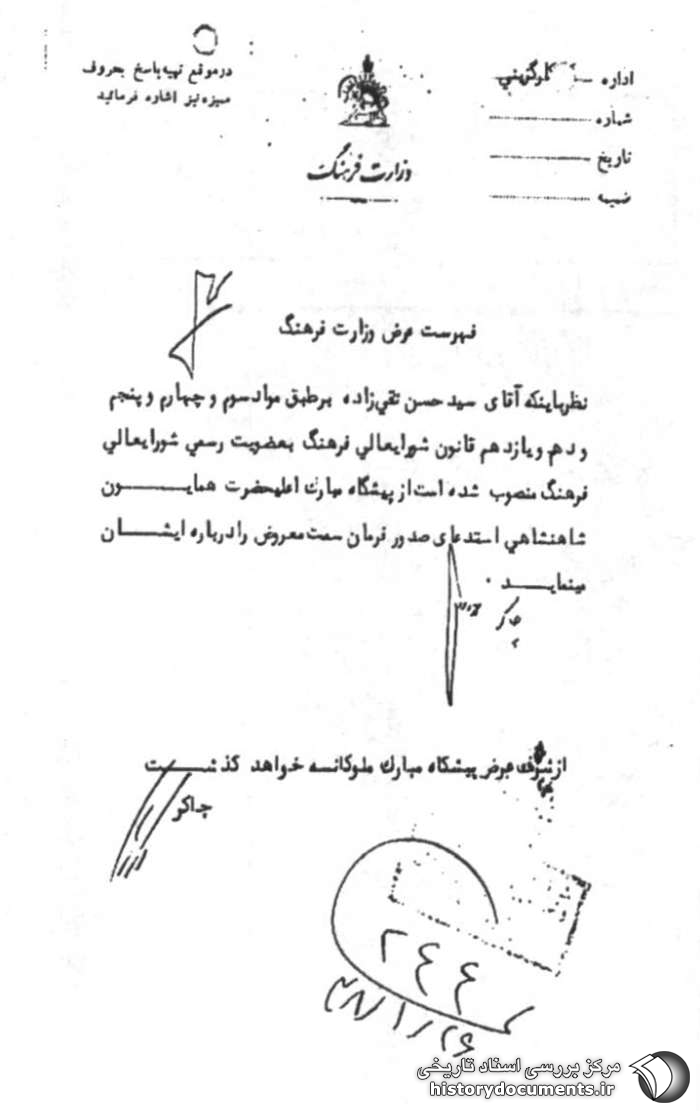 اداره كارگزيني
شماره
تاريخ
ضميمه
در موقع تهيه پاسخ بحروف
ميزه نيز اشاره فرمائيد
وزارت فرهنگ
فهرست عرض وزارت فرهنگ
نظرباينكه آقاى سيد حسن تقي‌زاده برطبق مواد سوم و چهارم و پنجم
و دهم و يازدهم قانون شورايعالي فرهنگ بعضويت رسمي شورايعالي
فرهنگ منصوب شده است از پيشگاه مبارك اعليحضرت همايـــون
شاهنشاهي استدعاى صدور فرمان سمت معروض را درباره ايشـــان
مينمايـــد .
از شرف عرض پيشگاه مبارك ملوكانـه خواهد گذشـــت
چاكر
۲۴۴
۲۸/۱/۲۶
مرکز بررسی اسناد تاریخی
historydocuments.ir